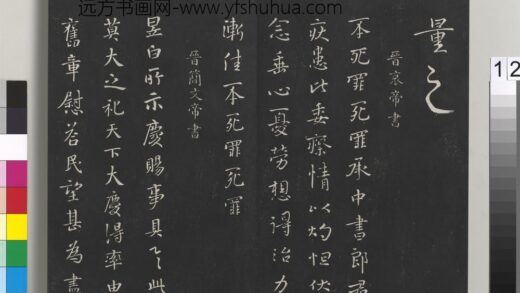 远方书画网-www.yfshuhua.com
量之
晉哀帝書
丕死罪死罪承中書郎君
疾患比委瘵情以灼怛伏
念垂心憂勞想得治力
漸佳丕死罪死罪
晉簡文帝書
昱白所示慶賜事具之此
莫大之祀天下大慶得率由
舊章慰荅民望甚為盡
12